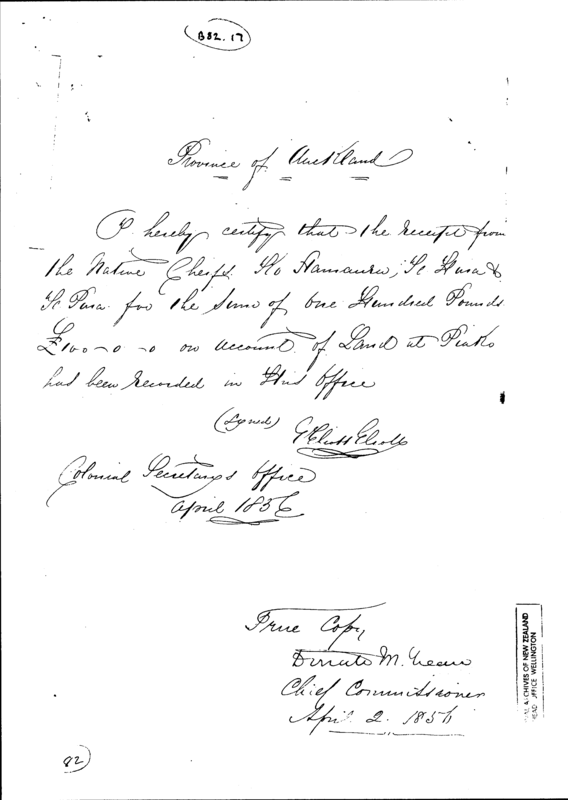 B82.17
Province of Auckland
I hereby certify that the receipt from
the Native Chiefs Ko Hamaura, Te Husa &
Te Pusa for the Sum of One Hundred Pounds
£100-0-0 on account of Land at Piako
had been recorded in this Office
(Signed)
G Eliott Eliott
Colonial Secretary's Office
April 1856
True Copy
Donald McLean
Chief Commissioner
April 2. 1856
ARCHIVES OF NEW ZEALAND
HEAD OFFICE WELLINGTON
82